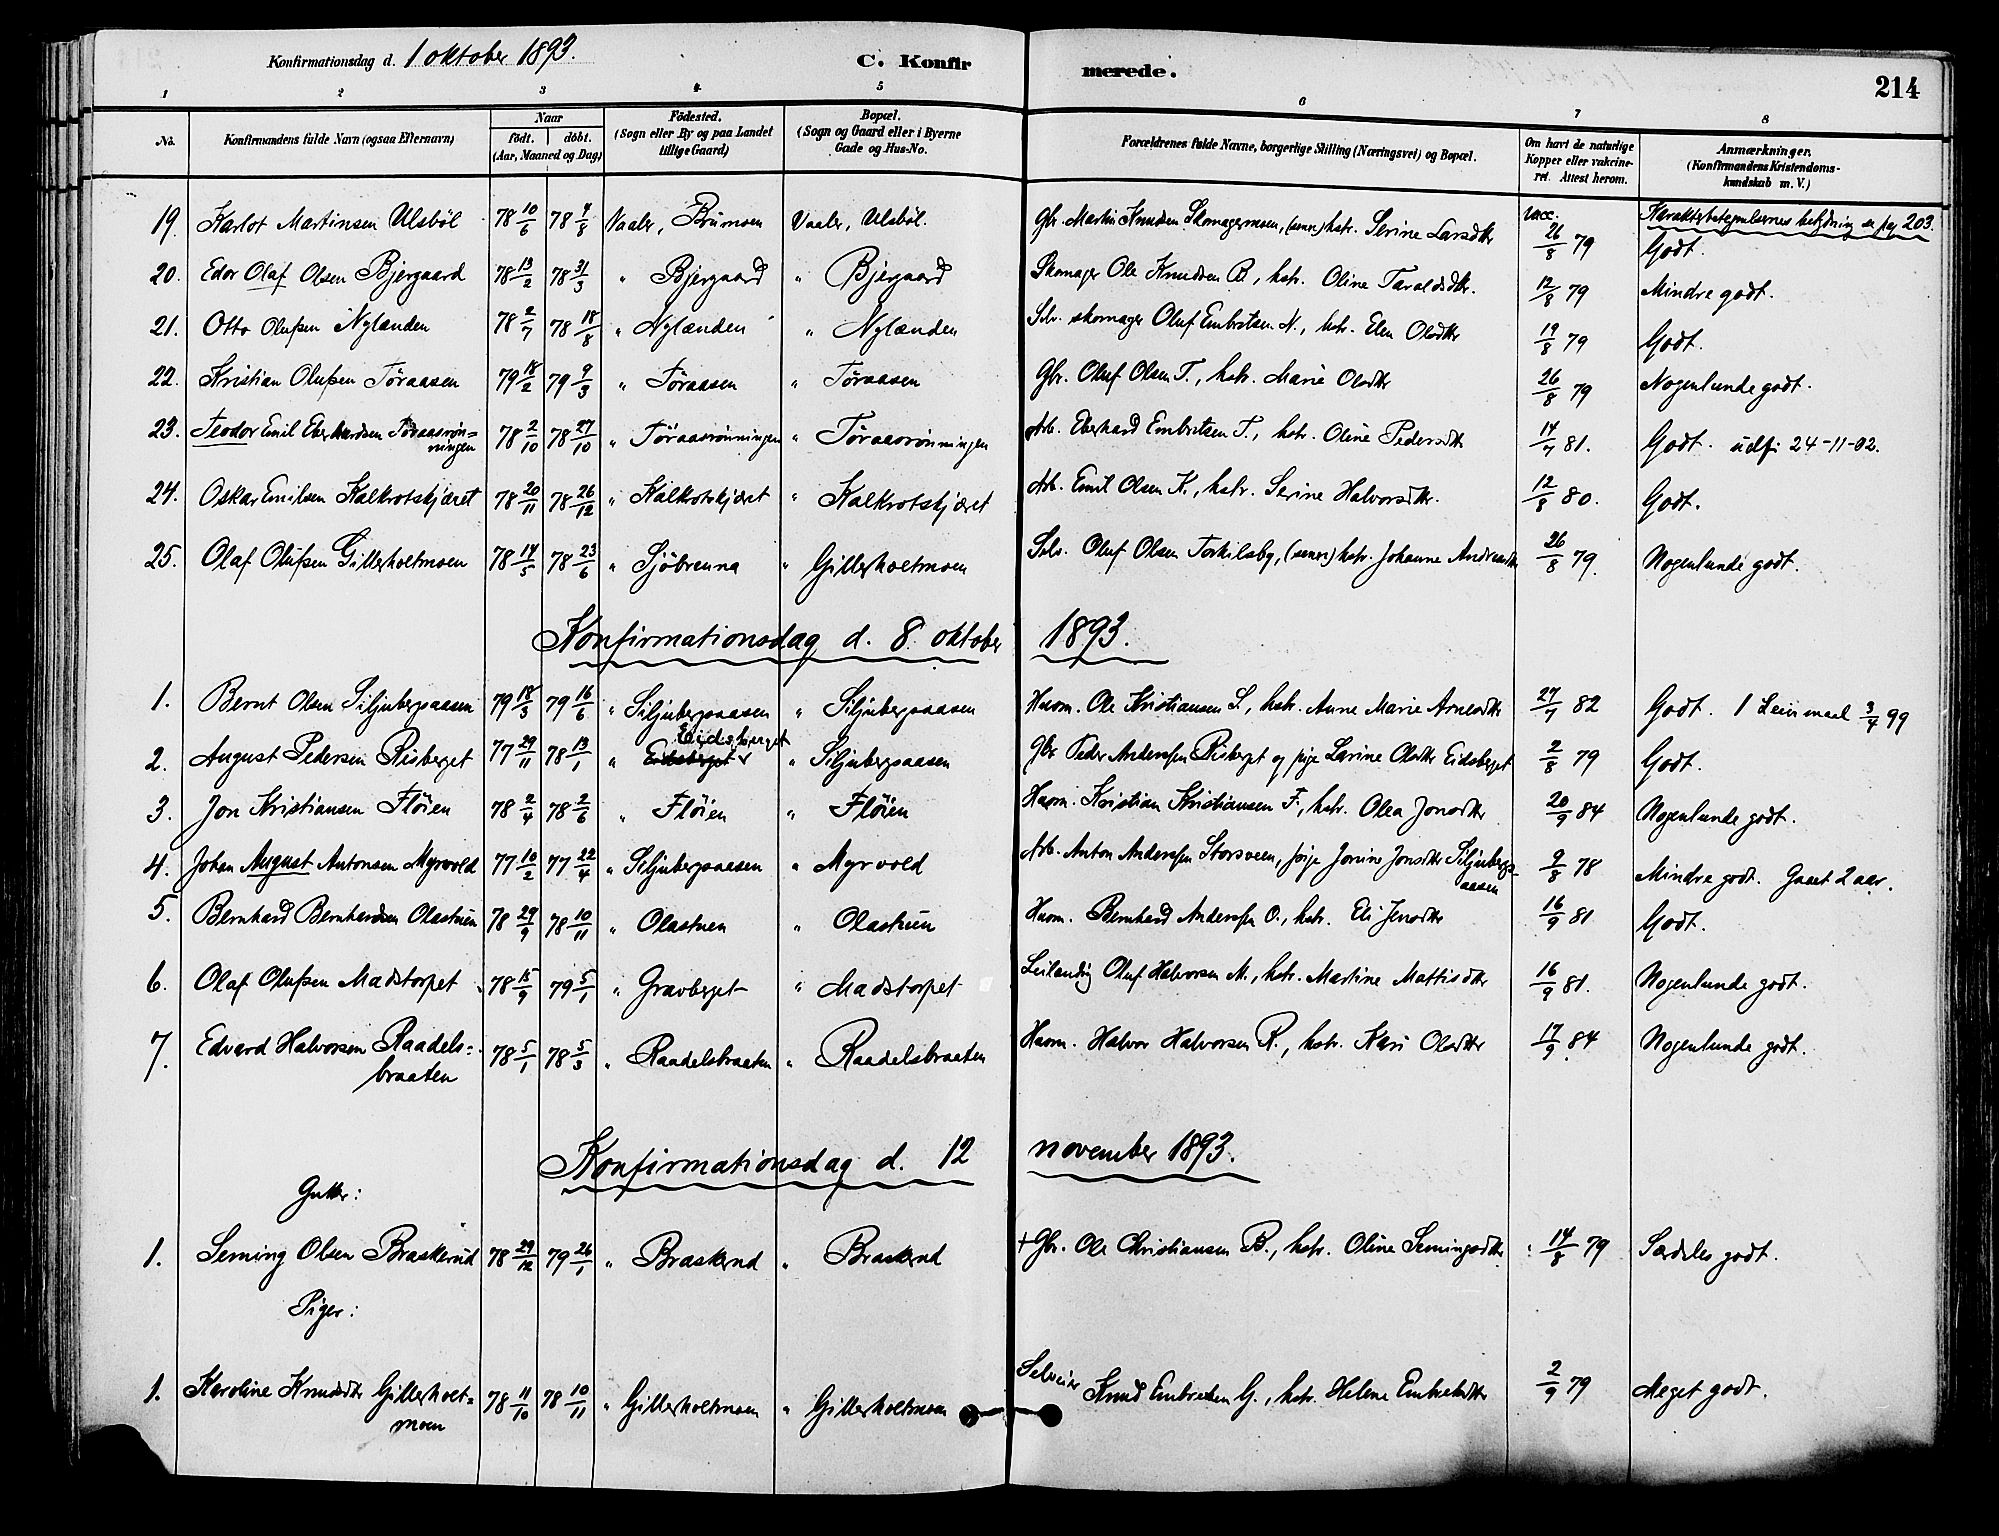 Konfirmationsdag d. 1 oktober 1893.
C. Konfirmerede.
214
1 2 3 4 5 6 7 8
No.
Konfirmandens fulde Navn (ogsaa Efternavn)
Naar
födt. döbt.
(Aar, Maaned og Dag)
Födested.
(Sogn eller By og paa Landet
tillige Gaard)
Bopæl.
(Sogn og Gaard eller i Byerne
Gade og Hus-No.
Forældrenes fulde Navne, borgerlige Stilling (Næringsvei) og Bopæl.
Om havt de naturlige
Kopper eller vakcine-
ret. Attest herom.
Anmærkninger.
(Konfirmandens Kristendoms-
kundskab m. V.)
vacc. Karakterbetegnelsernes betydning se pag 203.
19. Karlot Martinsen Ulsböl 78 10/6 78 4/8 Vaaler, Brumoen Vaaler, Ulsböl. Gbr. Martin Knudsen Skomagermoen, (senr.) hstr. Serine Larsdtter 26/8 79 Godt.
20. Edor Olaf Olsen Bjergaard 78 13/2 78 31/3 " Bjergaard " Bjergaard Skomager Ole Knudsen B., hstr. Oline Taraldsdtr. 12/8 79 Mindre godt.
21. Otto Olufsen Nylænden 78 2/7 78 18/8 " Nylænden " Nylænden Selv. skomager Oluf Embretsen N., hstr. Elen Olsdtter 19/8 79 Godt.
22. Kristian Olufsen Töraasen 79 18/2 79 9/3 " Töraasen " Töraasen Gbr. Oluf Olsen T., hstr. Marie Olsdtter 26/8 79 Nogenlunde godt.
23. Teodor Emil Eberhardsen Töraasrön=
ningen 78 2/10 78 27/10 " Töraasrönningen " Töraasrönningen Arb. Eberhard Embretsen T., hstr. Oline Pedersdtter 14/7 81. Godt. udfr. 24-11-02.
24. Oskar Emilsen Kalkrotskjæret 78 20/11 78 26/12 " Kalkrotskjæret " Kalkrotskjæret Arb. Emil Olsen K., hstr. Serine Halvorsdtter. 12/8 80. Godt.
25. Olaf Olufsen Gillerholtmoen 78 14/5 78 23/6 " Sjöbrenna " Gillerholtmoen Selv. Oluf Olsen Torkilsby, (senr.) hstr. Johanne Andreasdtr 26/8 79. Nogenlunde godt.
Konfirmationsdag d. 8. oktober 1893.
1. Bernt Olsen Siljubergsaasen 79 18/3 79 16/6 " Siljubergsaasen " Siljubergsaasen Husm. Ole Kristiansen S., hstr. Anne Marie Arnesdtter 27/7 82 Godt. 1 Leiermaal 3/4 99
2. August Pedersen Risberget 77 29/11 78 13/1 " Eidsberget Eidsberget " Siljubergsaasen Gbr Peder Anderssen Risberget og pige Larine Olsdtter Eidsberget 2/8 79 Godt.
3. Jon Kristiansen Flöien 78 2/4 78 2/6 " Flöien " Flöien Husm. Kristian Kristiansen F., hstr. Olea Jonsdtter 20/9 84 Nogenlunde godt.
4. Johan August Antonsen Myrvold 77 10/2 77 22/4 " Siljubergsaasen " Myrvold Arb. Anton Anderssen Storsveen, pige Jonine Jonsdtter Siljubergs-
aasen 9/8 78 Mindre godt. Gaaet 2 aar.
5. Bernhard Bernhardsen Olastuen 78 29/9 78 10/11 " Olastuen " Olastuen Husm. Bernhard Anderssen O., hstr. Eli Jensdtter 16/9 81 Godt.
6. Olaf Olufsen Madstorpet 78 15/9 79 5/1 " Gravberget " Madstorpet Leilænding Oluf Halvorsen M., hstr. Martine Mattisdtter 16/9 81. Nogenlunde godt.
7. Edvard Halvorsen Raadels=
braaten 78 5/1 78 5/3 " Raadelsbraaten " Raadelsbraaten Husm. Halvor Halvorsen R., hstr. Kari Olsdtter 17/9 84 Nogenlunde godt.
Konfirmationsdag d. 12 november 1893.
Gutter:
1. Seming Olsen Braskerud 78 29/12 79 26/1 " Braskerud " Braskerud + Gbr. Ole Christiansen B., hstr. Oline Semingsdtter 14/8 79 Særdeles godt.
Piger:
1. Karoline Knudsdtr Gillerholt=
moen 78 11/10 78 10/11 " Gillerholtmoen " Gillerholtmoen Selveier Knud Embretsen G., hstr. Helene Embretsdtter 2/9 79 Meget godt.